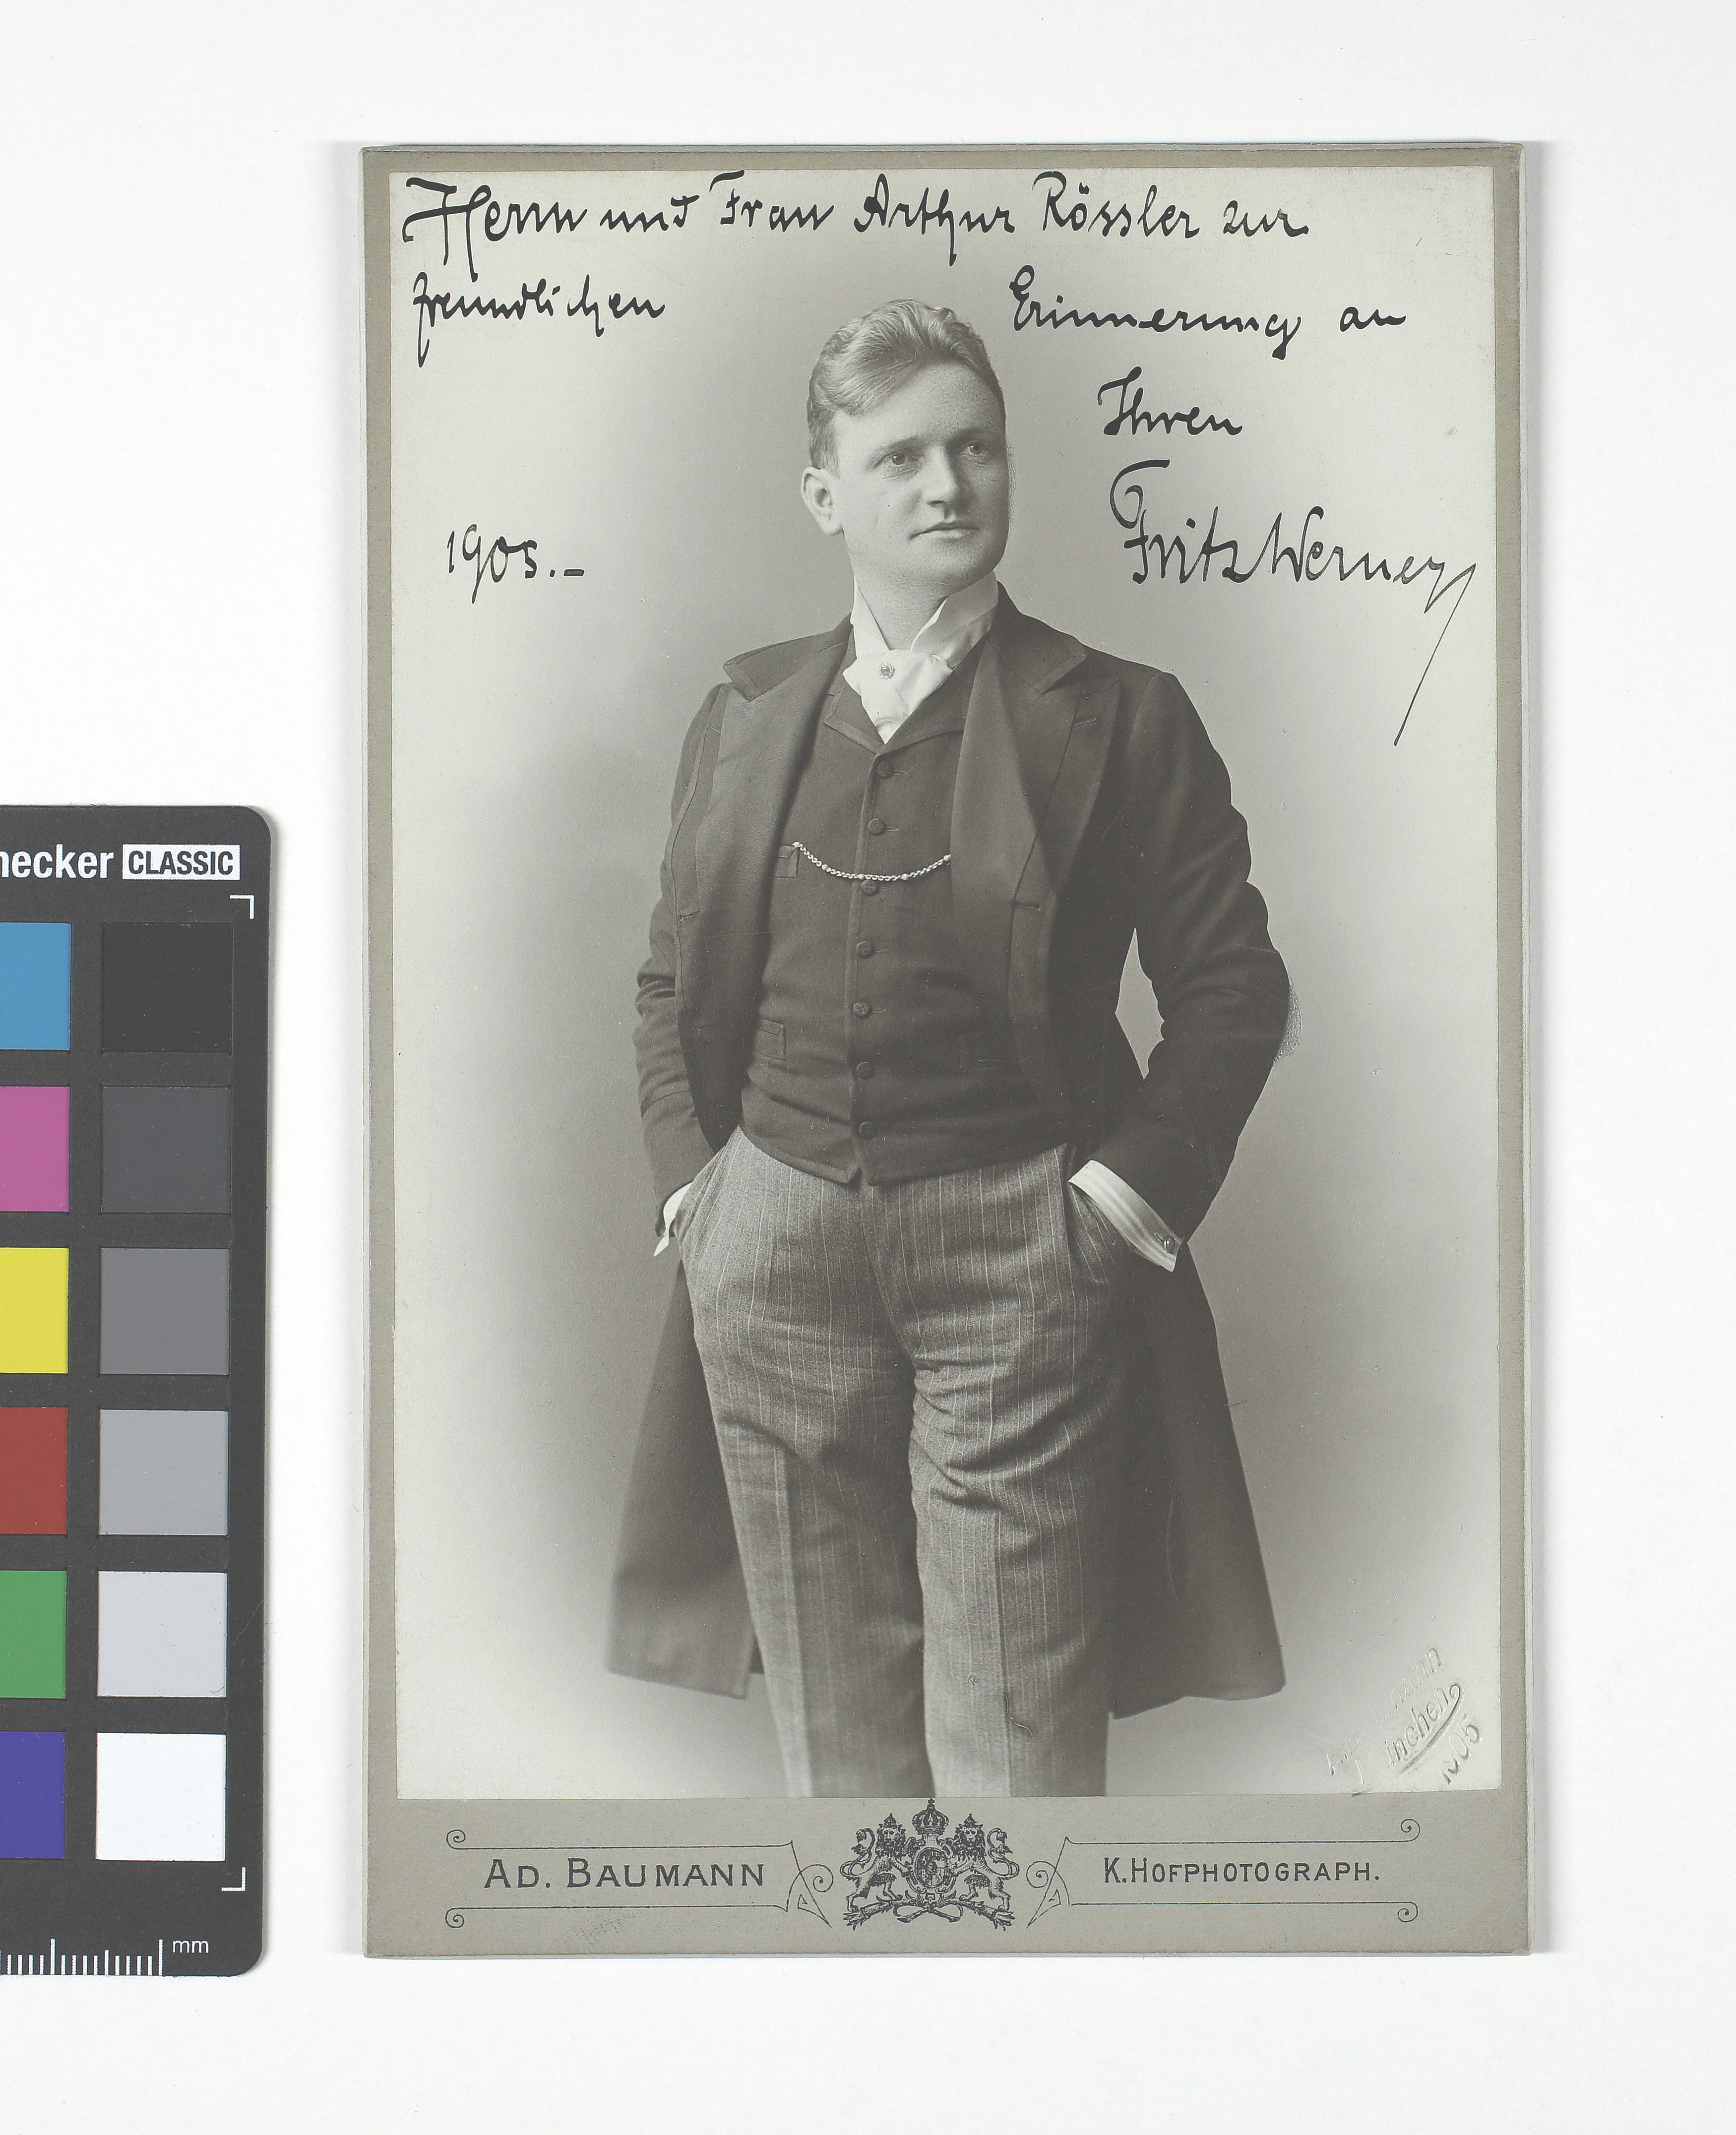 Herrn und Frau Arthur Rössler zur
freundlichen Erinnerung an
Ihren
Fritz Werner
1905.-
necker CLASSIC
mm
1905
AD. BAUMANN K.HOFPHOTOGRAPH.